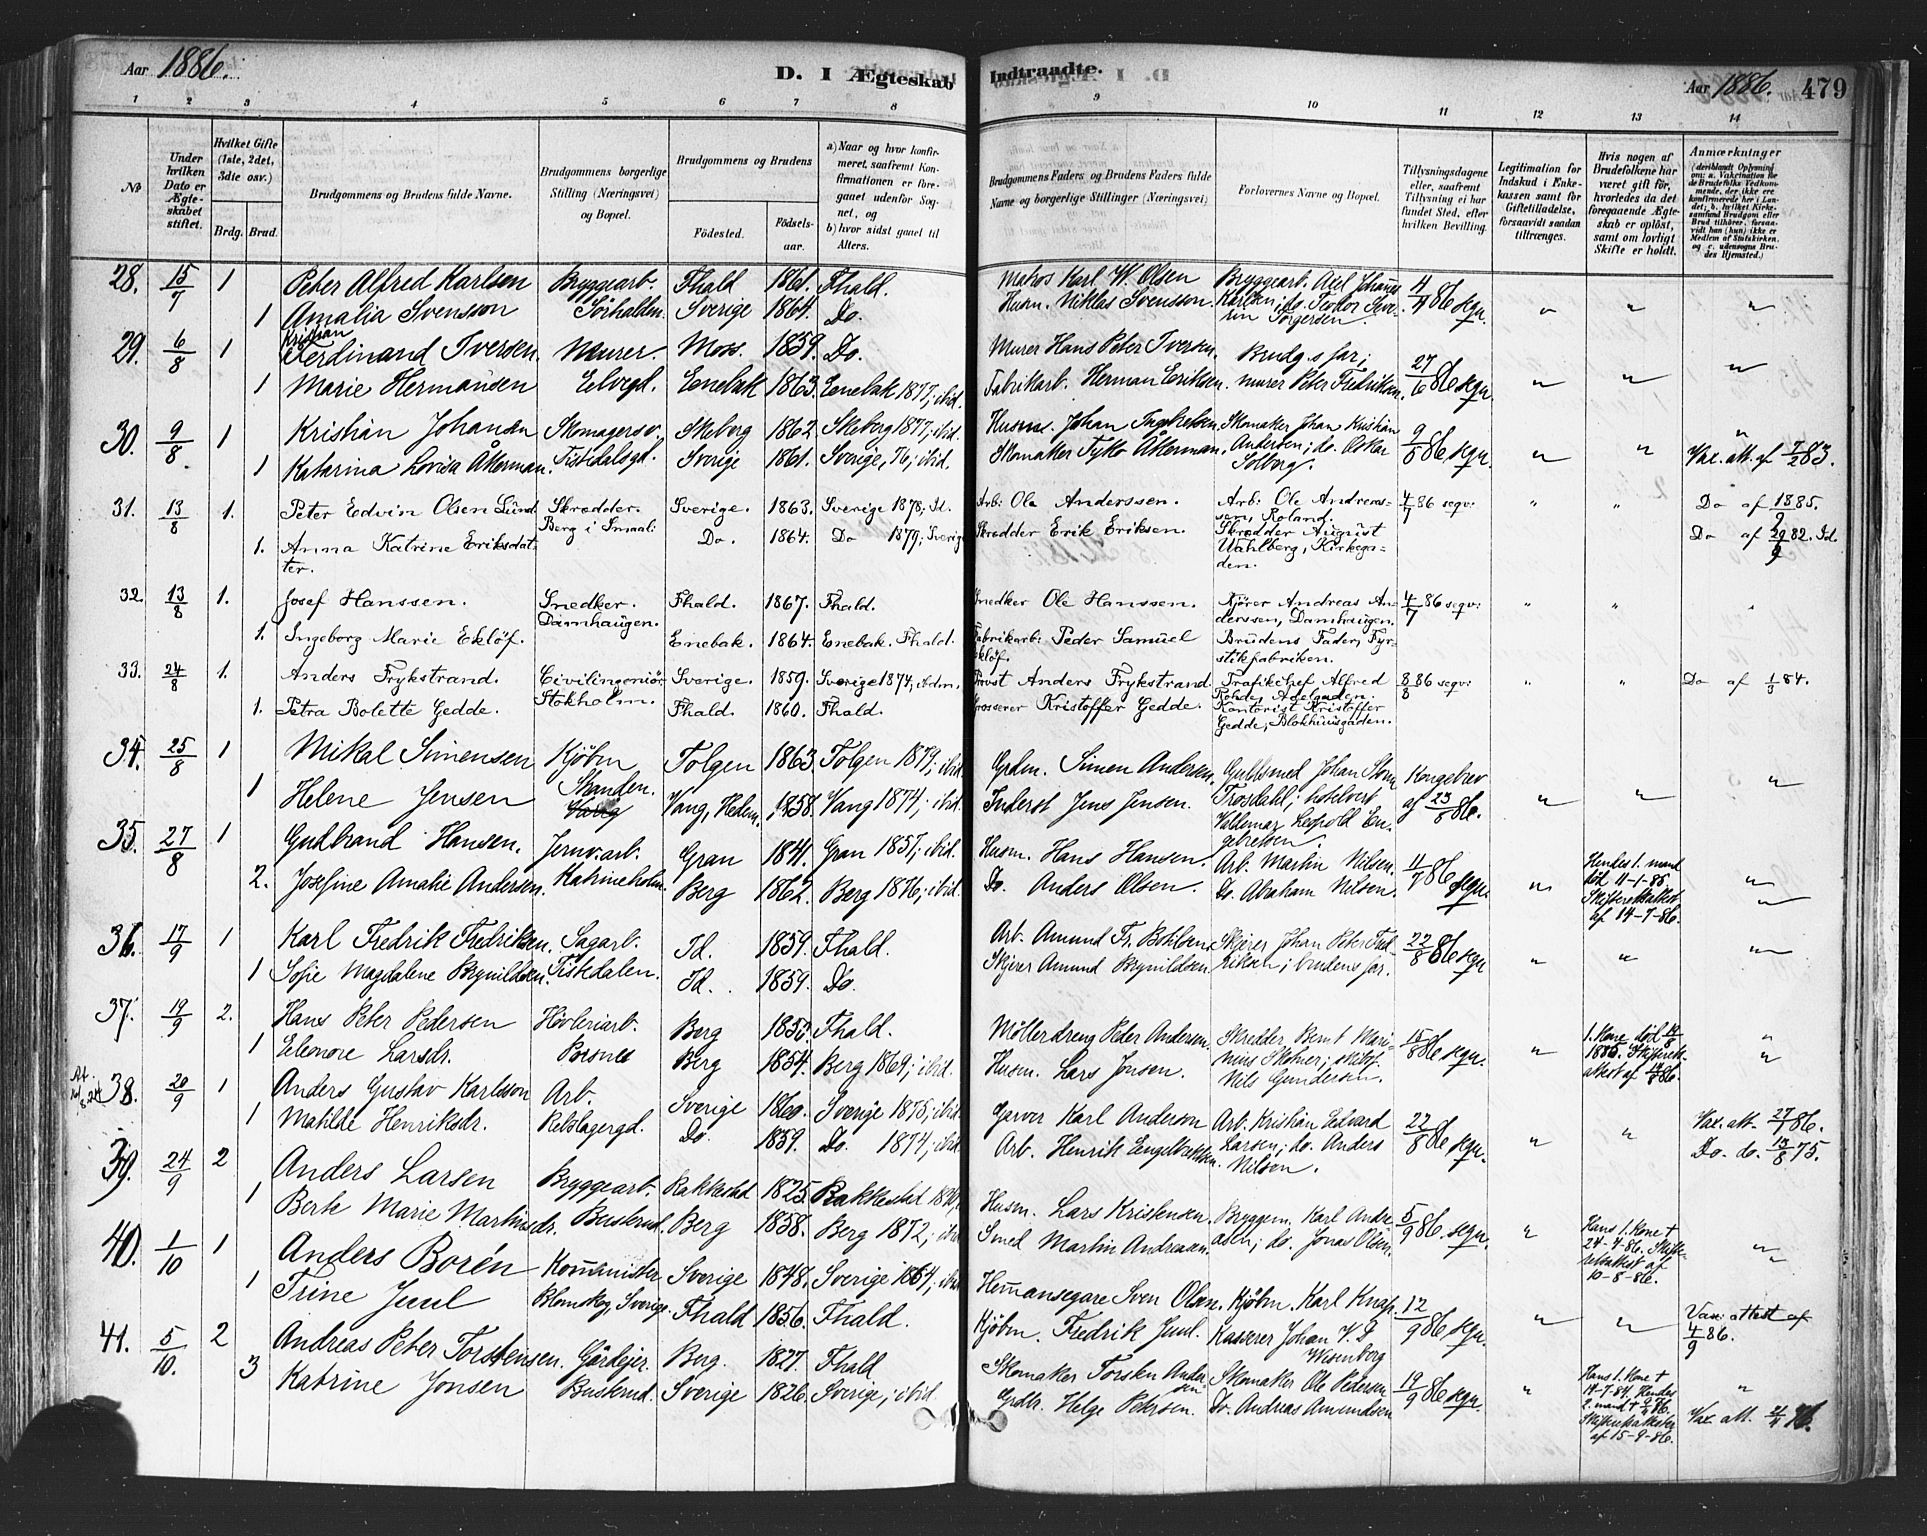 Aar 1886.
D. I Ægteskab Indtraadte.
Aar 1886. 479
1 2 3 4 5 6 7 8 9 10 11 12 13 14
No
Under hvilken Dato er Ægteskabet stiftet.
Hvilket Gifte (1ste, 2det, 3die osv.)
Brdg. Brud.
Brudgommens og Brudens fulde Navne.
Brudgommens borgerlige Stilling (Næringsvei) og Bopæl.
Brudgommens og Brudens
Fødested. Fødselsaar.
a) Naar og hvor konfirmeret, saafremt Konfirmationen er foregaaet udenfor Sognet, og
b) hvor sidst gaaet til Alters.
Brudgommens Faders og Brudens Faders fulde Navne og borgerlige Stillinger (Næringsvei)
Forlovernes Navne og Bopæl.
Tillysningsdagene eller, saafremt Tillysning ei har fundet Sted, efter hvilken Bevilling.
Legitimation for Indskud i Enkekassen samt for Giftetilladelse, forsaavidt saadan tiltrænges.
Hvis nogen af Brudefolkene har været gift før, hvorledes da det foregaaende Ægteskab er opløst, samt om lovligt Skifte er holdt.
Anmærkninger
28. 15/7 1 Peter Alfred Karlsen Bryggearb. Fhald 1861. Fhald. Matros Karl W. Olsen Bryggearb. Axel Johannes 4/4 86 sequ.
1 Amalia Svensson Sörhalden. Sverige 1864. Do. Husm. Niklas Svensson. Karlsen; do. Teodor Severin Torgersen.
29. 6/8 1 Kristian Ferdinand Iversen. Murer. Moss. 1859. Do. Murer Hans Peter Iversen. Brudg.s far; 27/6 86 sequ.
1 Marie Hermansen Elvegd. Enebak 1863. Enebak 1877; ibid. Fabrikarb. Herman Eriksen. murer Peter Fredriksen.
30. 9/8 1 Kristian Johansen Skomagersv. Skeberg 1862. Skeberg 1877; ibid. Husm. Johan Ingebretsen Skomaker Johan Kristian 9/5 86 sequ.
1 Katarina Lovisa Åkerman. Tistedalsgd. Sverige 1861. Sverige, 76; ibid. Skomaker Åkerman. Andersen; do. Oskar Solberg. Vax. att. af 7/2 83.
31. 13/8 1. Peter Edvin Olsen Lund Skrædder. Sverige. 1863. Sverige 1878, Id. Arb: Ole Anderssen. Arb: Ole Andreassen, Roland. 4/7 86 seqv: Do af 1885.
1. Anna Katrine Eriksdatter. Berg i Smaal: Do. 1864. Do 1879; Sverige Skrædder Erik Eriksen. Skrædder August Wahlberg, Kirkegaden. Do af 29/9 82. Id.
32. 13/8 1. Josef Hanssen. Snedker. Damhaugen. Fhald. 1867. Fhald. Snedker Ole Hanssen. Kjører Andreas Anderssen, Damhaugen. 4/7 86 seqv:
1. Ingeborg Marie Eklöf. Enebak. 1864. Enebak. Fhald. Fabrikarb: Peder Samuel Eklöf. Brudens Fader, Fyrstikfabriken.
33. 24/8 1. Anders Frykstrand. Civilingeniör Sverige. 1859. Sverige 1874; Provst Anders Frykstrand. Trafikchef Alfred Rohde, Adelgaden. 8/8 86 seqv: Do af 1/3 84.
1. Petra Bolette Gedde. Stokholm. Fhald. 1860. Fhald. Grosserer Kristoffer Gedde. Kontorist Kristoffer Gedde, Blokhuusgaden.
34. 25/8 1 Mikal Simensen Kjöbm Tolgen 1863 Tolgen 1879; ibid Grdm. Simen Andersen. Guldsmed Johan Trosdahl; Kongebrev
1 Helene Jensen Skanden. Vang, Hedem. 1858. Vang 1874; ibid. Inderst Jens Jensen. hotelvert Valdemar Leopold Engebretsen. af 23/8 86.
35. 27/8 1 Gudbrand Hansen. Jernv.arb. Gran 1841. Gran 1857; ibid. Husm. Hans Hansen. Arb. Martin Nilsen. 11/7 86 sequ. Hendes 1. mand död 11-1-86.
2. Josefine Amalie Andersen. Katrineholm. Berg 1862. Berg 1876; ibid. Do. Anders Olsen. Do. Abraham Nilsen. Skifteretsattest af 14-7-86.
36. 17/9 1 Karl Fredrik Fredriksen. Sagarb. Id. 1859. Fhald. Arb. Amund Fr. Skjerer Johan Peter Fredriksen; brudens far. 22/8 86 sequ
1 Sofie Magdalene Brynildsen. Tistedalen. Id. 1859. Do. Skjerer Amund Brynildsen.
37. 19/9 2. Hans Peter Pedersen Hövleriarb. Berg 1853. Fhald. Möllerdreng Peder Andersen. Skredder Bernt Marinius 15/8 86 sequ. 1. Kone död 1885. Skifteretsattest af
1 Eleonore Larsdr. Posnes Berg 1854. Berg 1869; ibid. Husm. Lars Jonsen. Nils Gundersen.
38. 20/9 1 Anders Gustav Karlsson Arb. Sverige 1860. Sverige 1875; ibid Garver Karl Anderson Arb. Kristian Edvard 22/8 86 sequ. Vax. att. 27/7 86.
1 Matilde Henriksdr. Rebslagergd. Do. 1859. Do. 1874; ibid Arb. Henrik Engelbrektsen. Larsen; do. Anders Nilsen. Do. do. 13/8 75.
39. 24/9 2 Anders Larsen Bryggearb. Rakkestad 1825. Rakkestad Husm. Lars Kristensen. Bryggem. Karl Andreasen; do. Jonas Olsen. 5/9 86. sequ. Hans 1. Kone †
1 Berte Marie Martinsdr. Buskrud. Berg 1858. Berg 1872; ibid Smed Martin Andreasen. 24-4-86. Skifteretsattest af 10-8-86.
40. 1/10 1 Anders Borén Komminister Sverige 1848. Sverige 1864; ibid Hemmansegare Sven Olsen. Kjöbm. Karl Knap. 12/9 86 sequ. Vax. attest af 4/9 86.
1 Trine Juul Blomskog, Sverige. Fhald 1856. Fhald. Kjöbm. Fredrik Juul. Kasserer Johan Wisenberg
41. 5/10. 2 Andreas Peter Torstensen. Gårdejer Berg. 1827. Fhald Skomaker Torsten Andersen Skomaker Ole Pedersen 19/9 86 sequ. Hans 1. Kone † 14-7-84. Hendes
3 Katrine Jonsen Buskrud. Sverige 1826. Sverige; ibid. Grdbr. Helge Petersen. Do. Andreas Amundsen 2. mand † Skifteretsattester af 15-9-86. Vax. att.